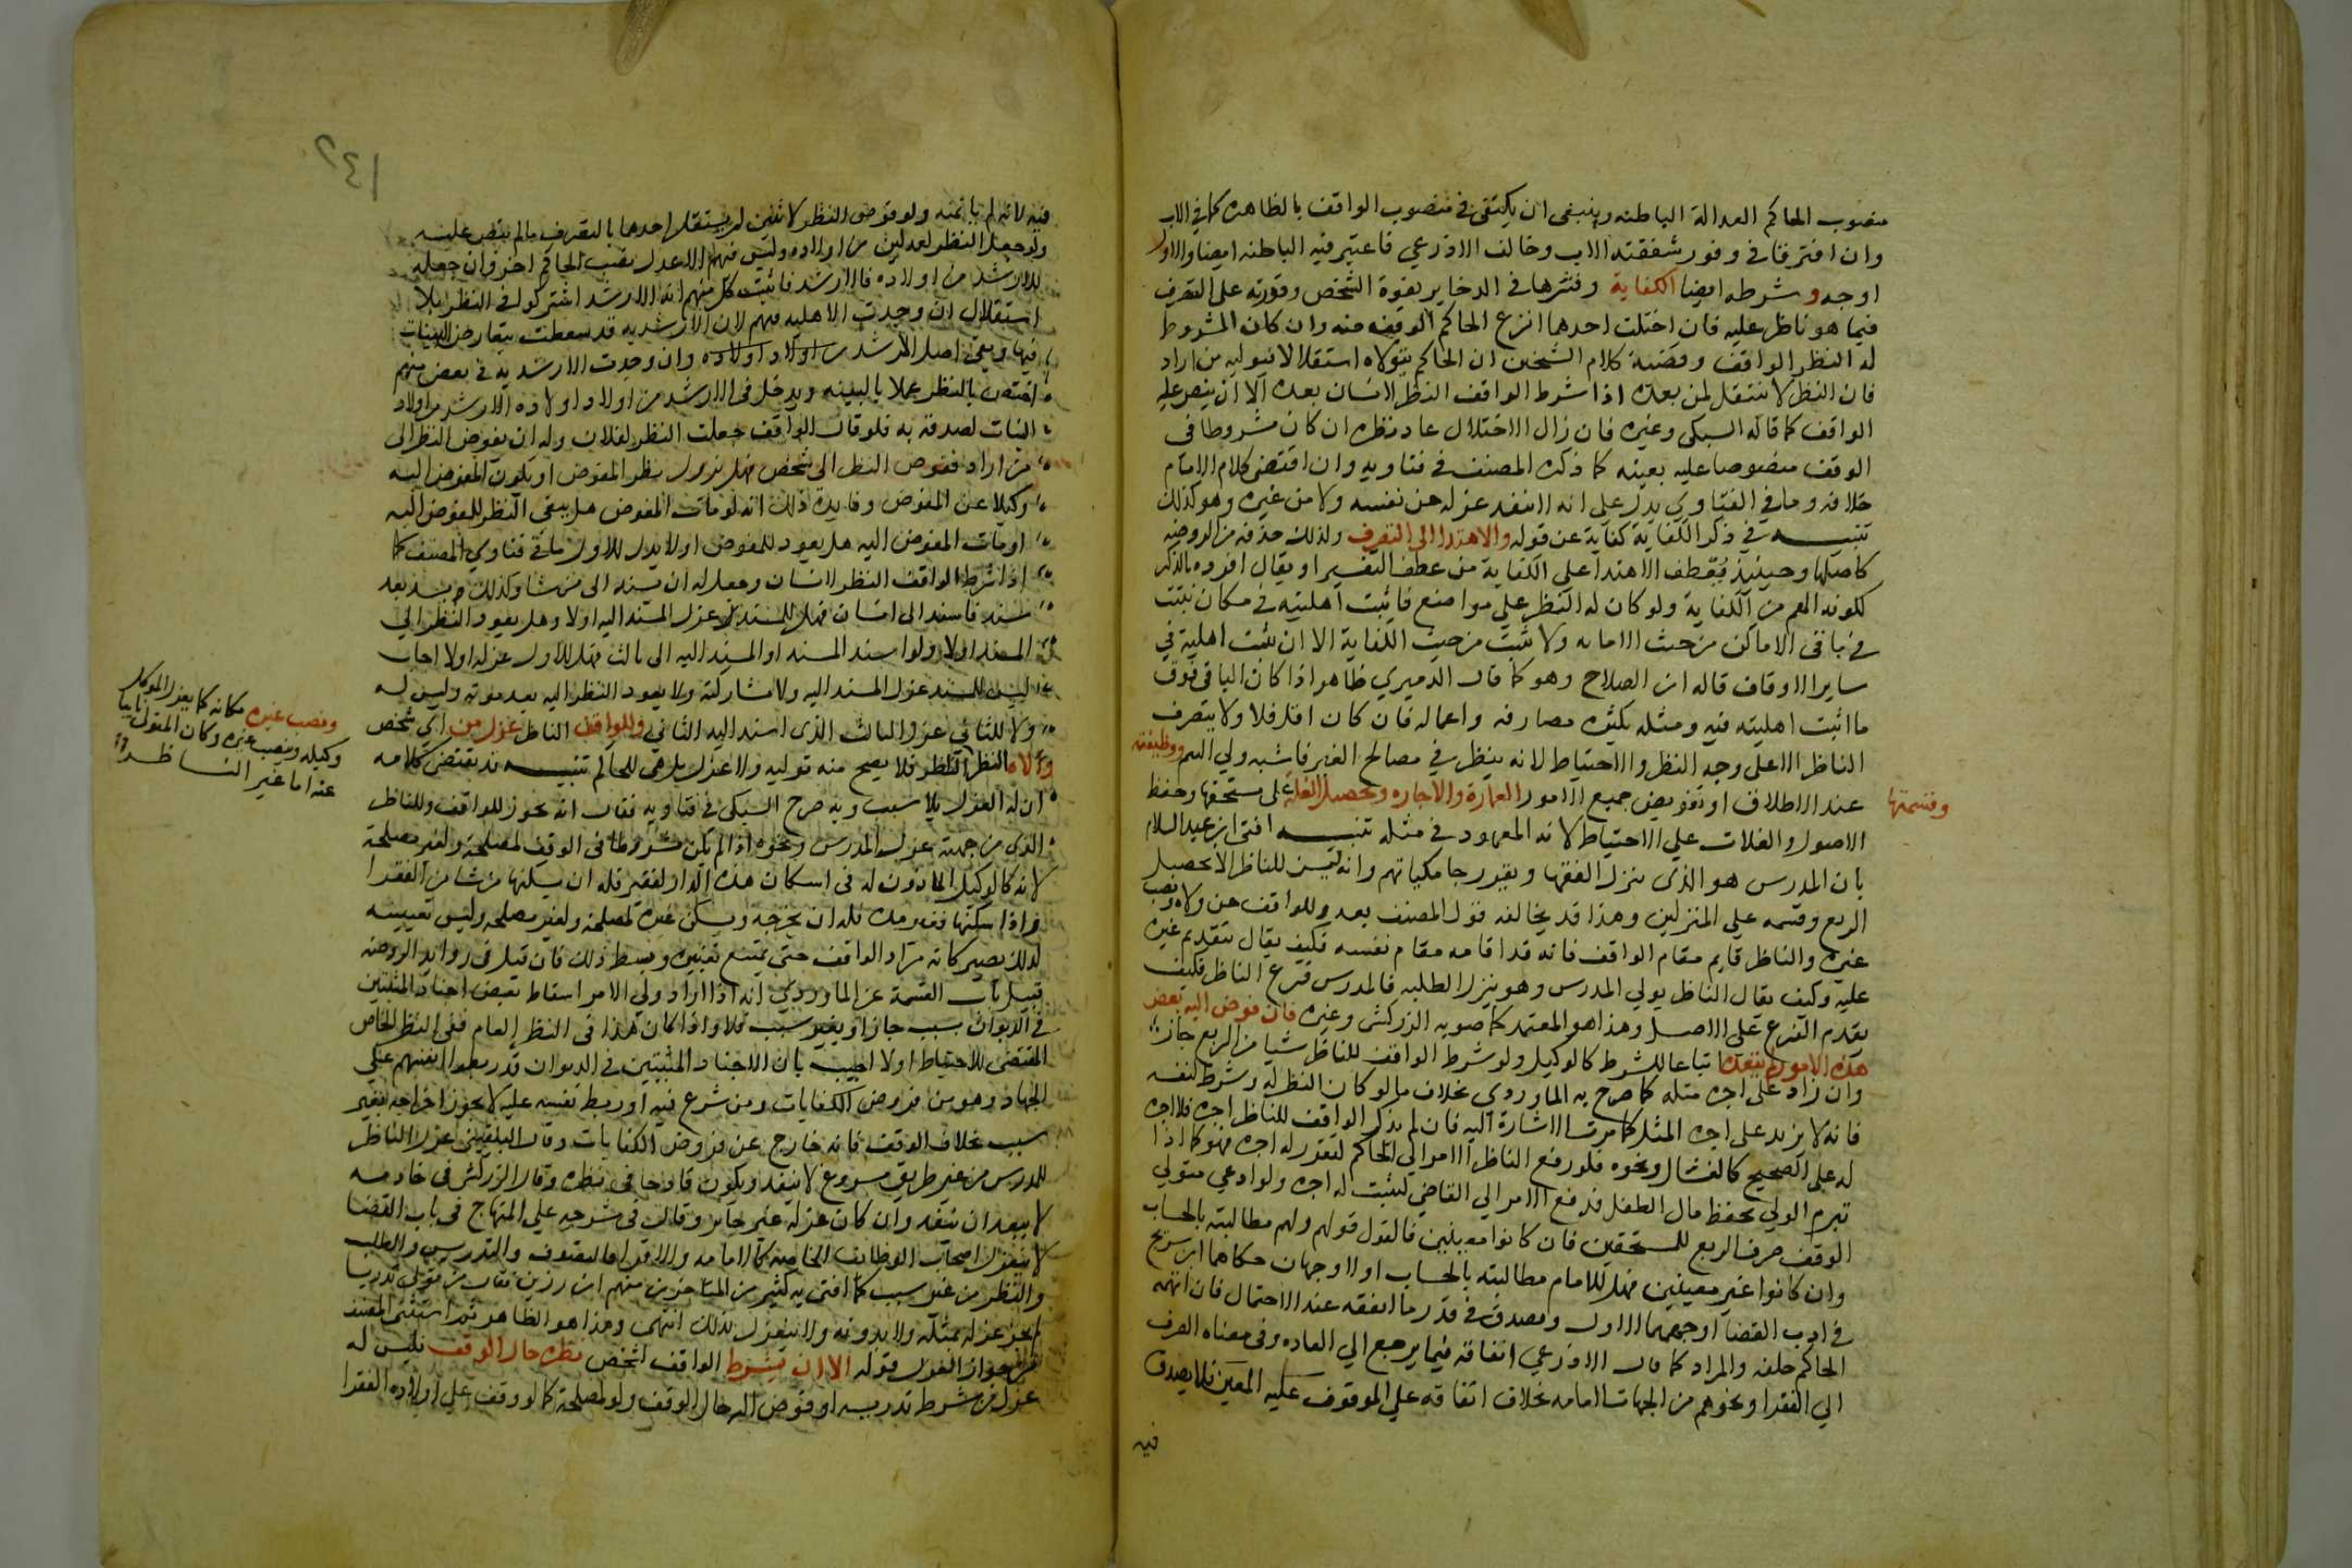 منصوب الحاكم العدالة الباطنه وينبغي ان يكتفي في منصوب الواقف بالظاهره كما في الاب
وان افترقا في وفور شفقته الاب وخالف الاذرعي فاعتبر فيه الباطنه ايضا والاول
اوجه وشرطه ايضا الكفاية وفسرها في الدخاير بقوة الشخص وقدرته على التصرف
فيما هو ناظر عليه فان اختلت احدها انزع الحاكم الوقف منه وان كان المشروط
له النظر الواقف وقضية كلام الشيخين ان الحاكم يتولاه استقلالا فيوليه من اراد
فان النظر لا ينتقل لمن بعده اذا شرط الواقف النظر لانسان بعده الا ان ينص عليه
الواقف كما قاله السبكي وغيره فان زال الاختلال عاد نظره ان كان مشروطا في
الوقف منصوصا عليه بعينه كما ذكره المصنف في فتاويه وان اقتضى كلام الامام
خلافه وما في الفتاوي يدل على انه لا ينفذ عزله من نفسه ولا من غيره وهو كذلك
تنبيه في ذكر الكفاية كفاية عن قوله والاهتدا الى التصرف ولذلك حذفه من الروضه
كاصلها وحينئذ فيعطف الاهتدا على الكفاية من عطف التفسير او يقال افرده بالذكر
لكونه المهم من الكفاية ولو كان له النظر على مواضع فاثبت اهليته في مكان ثبتت
في باقي الاماكن من حيث الامانه ولا تثبت من حيث الكفاية الا ان تثبت اهليته في
ساير الاوقاف قاله ابن الصلاح وهو كما قال الدميري ظاهر اذا كان الباقي فوق
ما اثبت اهليته فيه ومثله بكثره مصارفه واعماله فان كان اقل فلا ولا يتصرف
الناظر الا على وجه النظر والاحتياط لانه ينظر في مصالح الغير فاشبه ولي اليتيم ووظيفته
عند الاطلاق او تفويض جميع الامور العمارة والاجاره وتحصيل الغلة على مستحقها وحفظ
وقسمتها
الاصول والغلات على الاحتياط لانه المعهود في مثله تنبيه افتى ابن عبد السلام
بان المدرس هو الذي ينزل الفقها ويقرر جامكياتهم وانه ليس للناظر الا تحصيل
الريع وقسمه على المنزلين وهذا قد يخالفه قول المصنف بعد وللواقف عزل من ولاه ونصب
غيره والناظر قايم مقام الواقف فانه قد اقامه مقام نفسه فكيف يقال بتقديم غيره
عليه وكيف يقال الناظر يولي المدرس وهو ينزل الطلبه فالمدرس فرع الناظر فكيف
يقدم الفرع على الاصل وهذا هو المعتمد كما صوبه الزركشي وغيره فان فوض اليه بعض
هذه الامور لم يتعده اتباعا للشرط كالوكيل ولو شرط الواقف للناظر شيا من الريع جاز
وان زاد على اجرة مثله كما صرح به الماوردي بخلاف ما لو كان النظر له وشرط لنفسه
فانه لا يزيد على اجرة المثل كما مرت الاشارة اليه فان لم يذكر الواقف للناظر اجرة فلا اجره
له على الصحيح كالغسال ونحوه فلو رفع الناظر الامر الى الحاكم ليقرر له اجرة فهو كما اذا
تبرم الولي بحفظ مال الطفل فرفع الامر الى القاضي ليثبت له اجره ولو ادعى متولي
الوقف صرف الريع للمستحقين فان كانوا معينين فالقول قولهم ولهم مطالبته بالحساب
وان كانوا غير معينين فهل للامام مطالبته بالحساب اولا وجهان حكاهما ابن سريج
في ادب القضا اوجههما الاول ويصدق في قدر ما انفقه عند الاحتمال فان اتهمه
الحاكم حلفه والمراد كما قال الاذرعي انفاقه فيما يرجع الى العاده وفي معناه الصرف
الى الفقرا ونحوهم من الجهات العامه بخلاف انفاقه على الموقوف عليه المعين فلا يصدق
فيه
١٤٢
فيه لانه لم ياتمنه ولو فوض النظر لاثنين لم يستقل احدهما بالتصرف مالم ينص عليه
ولو جعل النظر لعدلين من اولاده وليس فيهم الا عدل نصب الحاكم اخر وان جعله
للارشد من اولاده فالارشد فاثبت كل منهم انه الارشد اشتركوا في النظر بلا
استقلال ان وجدت الاهليه فيهم لان الارشديه قد سقطت بتعارض البينات
فيها وبقي اصل الرشد من اولاد اولاده وان وجدت الارشديه في بعض منهم
اختص بالنظر عملا بالبينه ويدخل في الارشد من اولاد اولاده الارشد من اولاد
البنات لصدقه به فلو قال الواقف جعلت النظر لفلان وله ان يفوض النظر الى
من اراد ففوض النظر الى شخص فهل يزول نظر المفوض او يكون المفوض اليه
وكيلا عن المفوض وفايدة ذلك انه لو مات المفوض هل يبقى النظر للمفوض اليه
او مات المفوض اليه هل يعود للمفوض اولا يدل للاول ما في فتاوي المصنف كما
اذا شرط الواقف النظر لانسان وجعل له ان يسنده الى من شا وكذلك مسند بعد
مسند فاسند الى انسان فهل للمسند عزل المسند اليه اولا وهل يعود النظر الى
المسند اولا ولو اسند المسند او المسند اليه الى ثالث فهل للاول عزله اولا اجاب
ليس للمسند عزل المسند اليه ولا مشاركته ولا يعود النظر اليه بعد موته وليس له
ولا للثاني عزل الثالث الذي اسند اليه الثاني وللواقف الناظر عزل من اي شخص
ولاه النظر الناظر فلا يصح منه توليه ولا عزل بل هي للحاكم تنبيه قد يقتضي كلامه
ان له العزل بلا سبب وبه صرح السبكي في فتاويه فقال انه يجوز للواقف وللناظر
الذي من جهته عزل المدرس ونحوه اذا لم يكن مشروطا في الوقف لمصلحة ولغير مصلحة
لانه كالوكيل الماذون له في اسكان هذه الدار لفقير فله ان يسكنها من شا من الفقرا
واذا اسكنها فقيرا مده فله ان يخرجه ويسكن غيره لمصلحه ولغير مصلحه وليس تعيينه
لذلك يصير كانه مراد الواقف حتى يمتنع تغييره وبسط ذلك فان قيل في زوايد الروضه
قبيل باب القسمة عن الماوردي انه اذا اراد ولي الامر اسقاط بعض اجناد المثبتين
في الديوان بسبب جاز او بغير سبب فلا واذا كان هذا في النظر العام ففي النظر الخاص
المقتضي للاحتياط اولا اجيب بان الاجناد المثبتين في الديوان قد ربطوا انفسهم على
الجهاد وهو من فروض الكفايات ومن شرع فيه او ربط نفسه عليه لا يجوز اخراجه بغير
سبب بخلاف الوقف فانه خارج عن فروض الكفايات وقال البلقيني عزل الناظر
للمدرس من غير طريق مسوغ لا ينفذ ويكون قادحا في نظره وقال الزركشي في خادمه
لا يبعد ان ينفذ وان كان عزله غير جايز وقال في شرحه على المنهاج في باب القضا
لا ينعزل اصحاب الوظائف الخاصة كالامامه والاقرا والتصوف والتدريس والطلب
والنظر من غير سبب كما افتى به كثير من المتاخرين منهم ابن رزين فقال من تولى تدريسا
لم يجز عزله بمثله ولا بدونه ولا ينعزل بذلك انتهى وهذا هو الظاهر ثم استثنى المصنف
من جواز العزل قوله الا ان يشرط الواقف لشخص نظره حال الوقف فليس له
عزل من شرط تدريسه او فوض اليه حال الوقف ولو لمصلحة كما لو وقف على اولاده الفقرا
ونصب غيره مكانه كما يعزل الموكل
وكيله وينصب غيره وكان المتولي نايبا
عنه اما غير الناظر